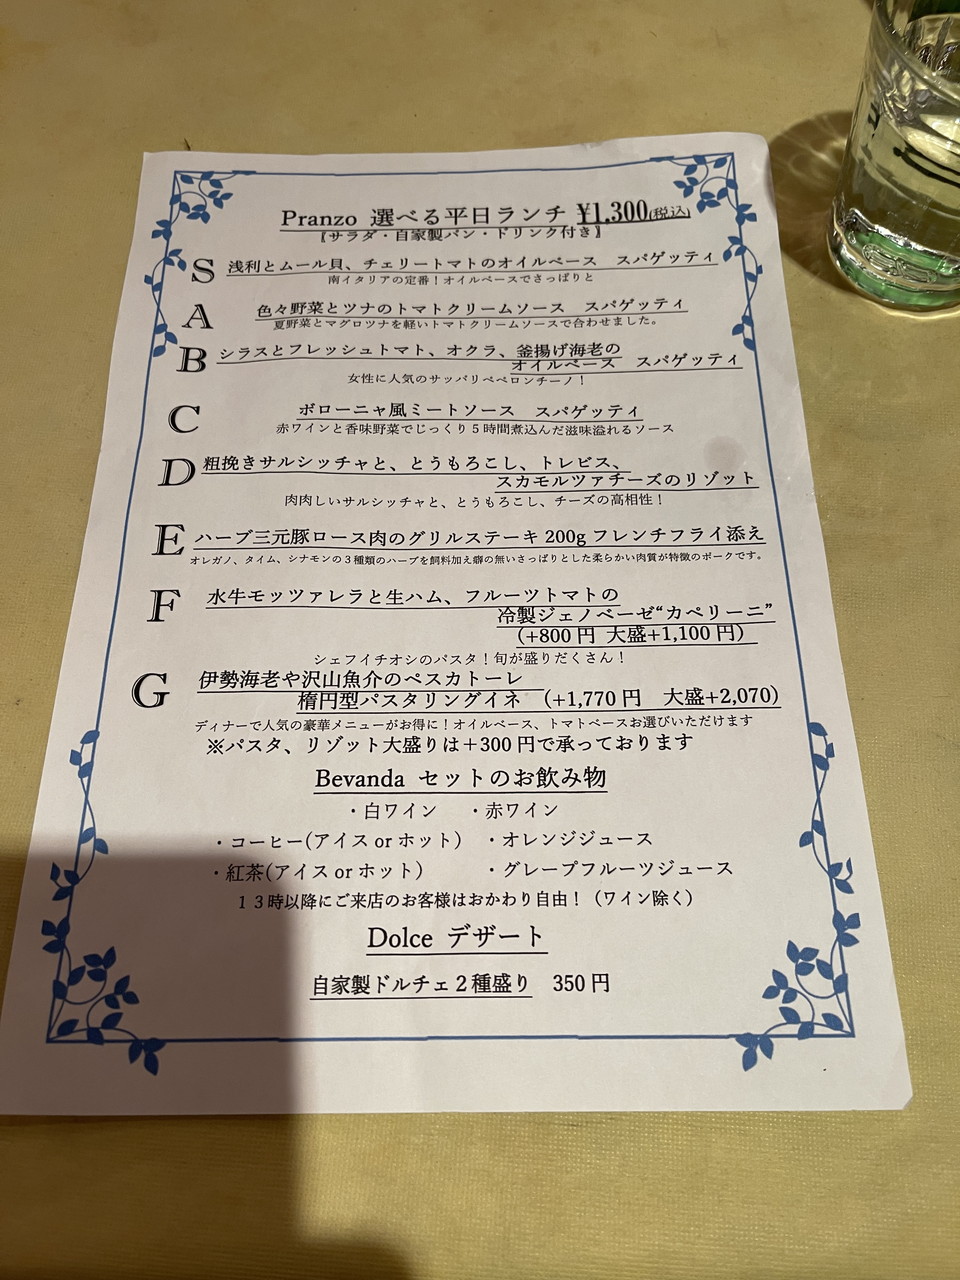 Pranzo 選べる平日ランチ ¥1,300(税込)
〖サラダ・自家製パン・ドリンク付き〗
S 浅利とムール貝、チェリートマトのオイルベース スパゲッティ
南イタリアの定番！オイルベースでさっぱりと
A 色々野菜とツナのトマトクリームソース スパゲッティ
夏野菜とマグロツナを軽いトマトクリームソースで合わせました。
B シラスとフレッシュトマト、オクラ、釜揚げ海老の
オイルベース スパゲッティ
女性に人気のサッパリペペロンチーノ！
C ボローニャ風ミートソース スパゲッティ
赤ワインと香味野菜でじっくり５時間煮込んだ滋味溢れるソース
D 粗挽きサルシッチャと、とうもろこし、トレビス、
スカモルツァチーズのリゾット
肉肉しいサルシッチャと、とうもろこし、チーズの高相性！
E ハーブ三元豚ロース肉のグリルステーキ 200g フレンチフライ添え
オレガノ、タイム、シナモンの３種類のハーブを飼料加え癖の無いさっぱりとした柔らかい肉質が特徴のポークです。
F 水牛モッツァレラと生ハム、フルーツトマトの
冷製ジェノベーゼ“カペリーニ”
(+800 円 大盛+1,100 円)
シェフイチオシのパスタ！旬が盛りだくさん！
G 伊勢海老や沢山魚介のペスカトーレ
楕円型パスタリングイネ (+1,770 円 大盛+2,070)
ディナーで人気の豪華メニューがお得に！オイルベース、トマトベースお選びいただけます
※パスタ、リゾット大盛りは＋300 円で承っております
Bevanda セットのお飲み物
・白ワイン ・赤ワイン
・コーヒー(アイス or ホット) ・オレンジジュース
・紅茶(アイス or ホット) ・グレープフルーツジュース
１３時以降にご来店のお客様はおかわり自由！（ワイン除く）
Dolce デザート
自家製ドルチェ２種盛り 350 円